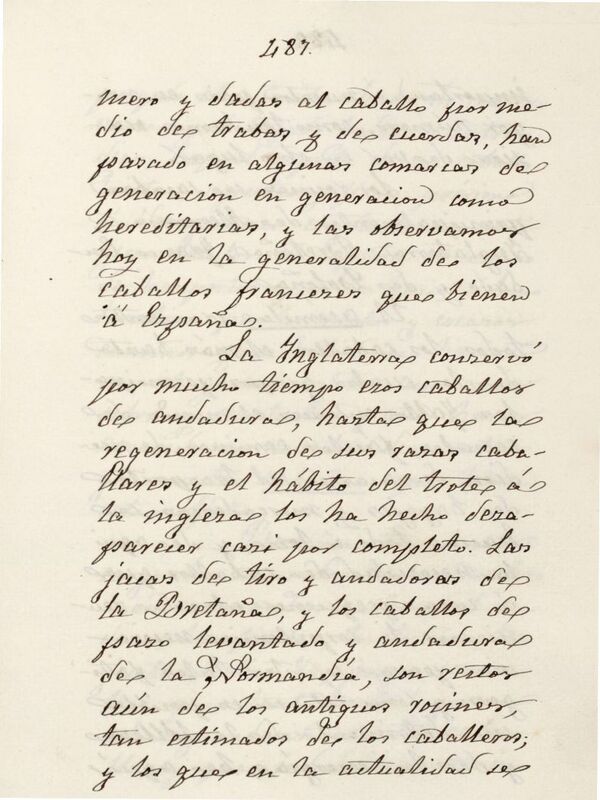 487.
mero y dadas al caballo por me-
dio de trabas y de cuerdas, han
pasado en algunas comarcas de
generacion en generacion como
hereditarias, y las observamos
hoy en la generalidad de los
caballos franceses que bienen
á España.
La Inglaterra conservó
por mucho tiempo esos caballos
de andadura, hasta que la
regeneracion de sus razas caba-
llares y el hábito del trote á
la inglesa los ha hecho desa-
parecer casi por completo. Las
jacas de tiro y andadoras de
la Bretaña, y los caballos de
paso levantado y andadura
de la Normandía, son restos
aún de los antiguos rocines,
tan estimados de los caballeros;
y los que en la actualidad se